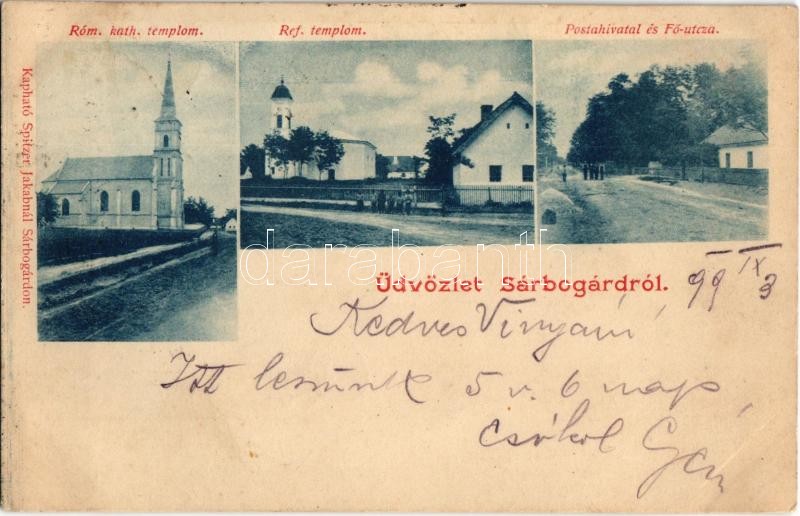 Róm. kath. templom.
Ref. templom.
Postahivatal és Fő-utcza.
Kapható Spitzer Jakabnál Sárbogárdon.
darabanth
Üdvözlet Sárbogárdról.
99 IX 3
Kedves
Itt leszünk 5 v. 6 nap
csókol